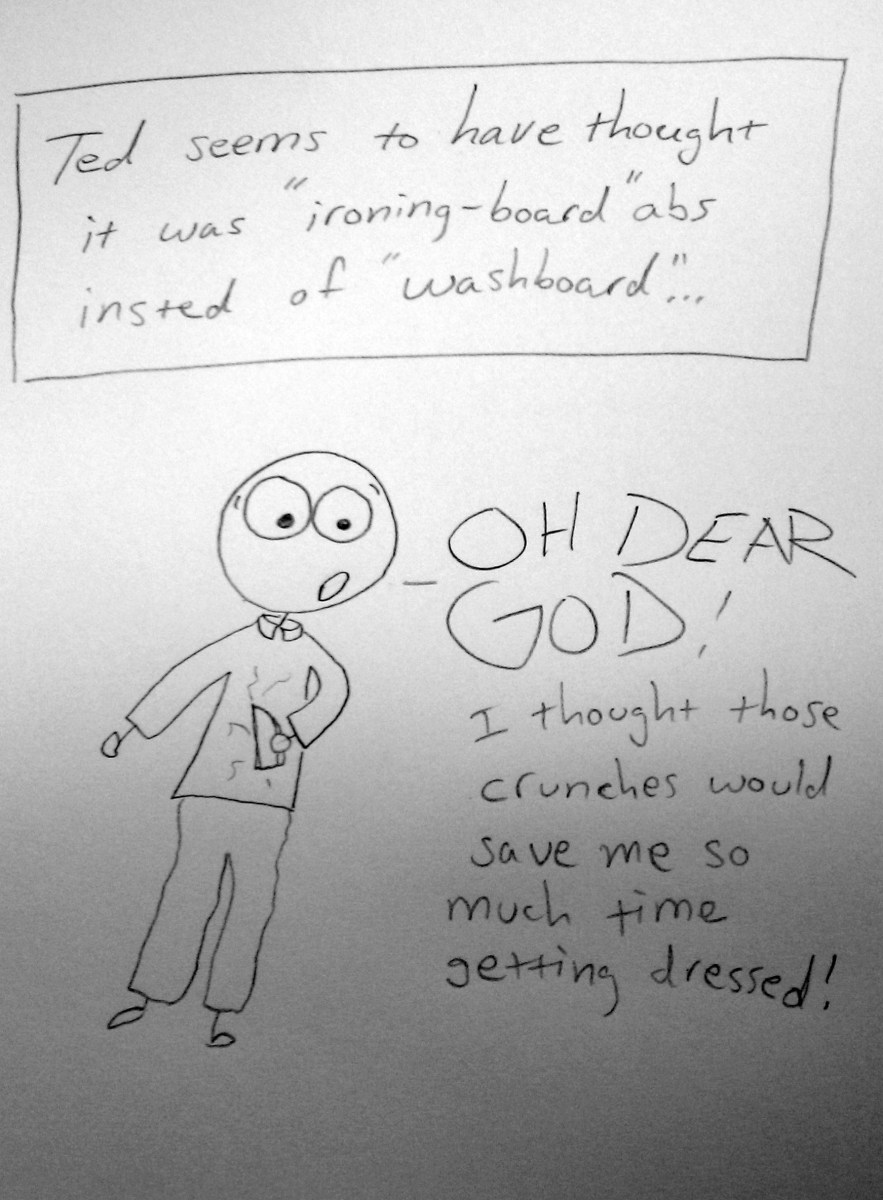 Ted seems to have thought
it was "ironing-board" abs
insted of "washboard"...
- OH DEAR
GOD!
I thought those
crunches would
save me so
much time
getting dressed!